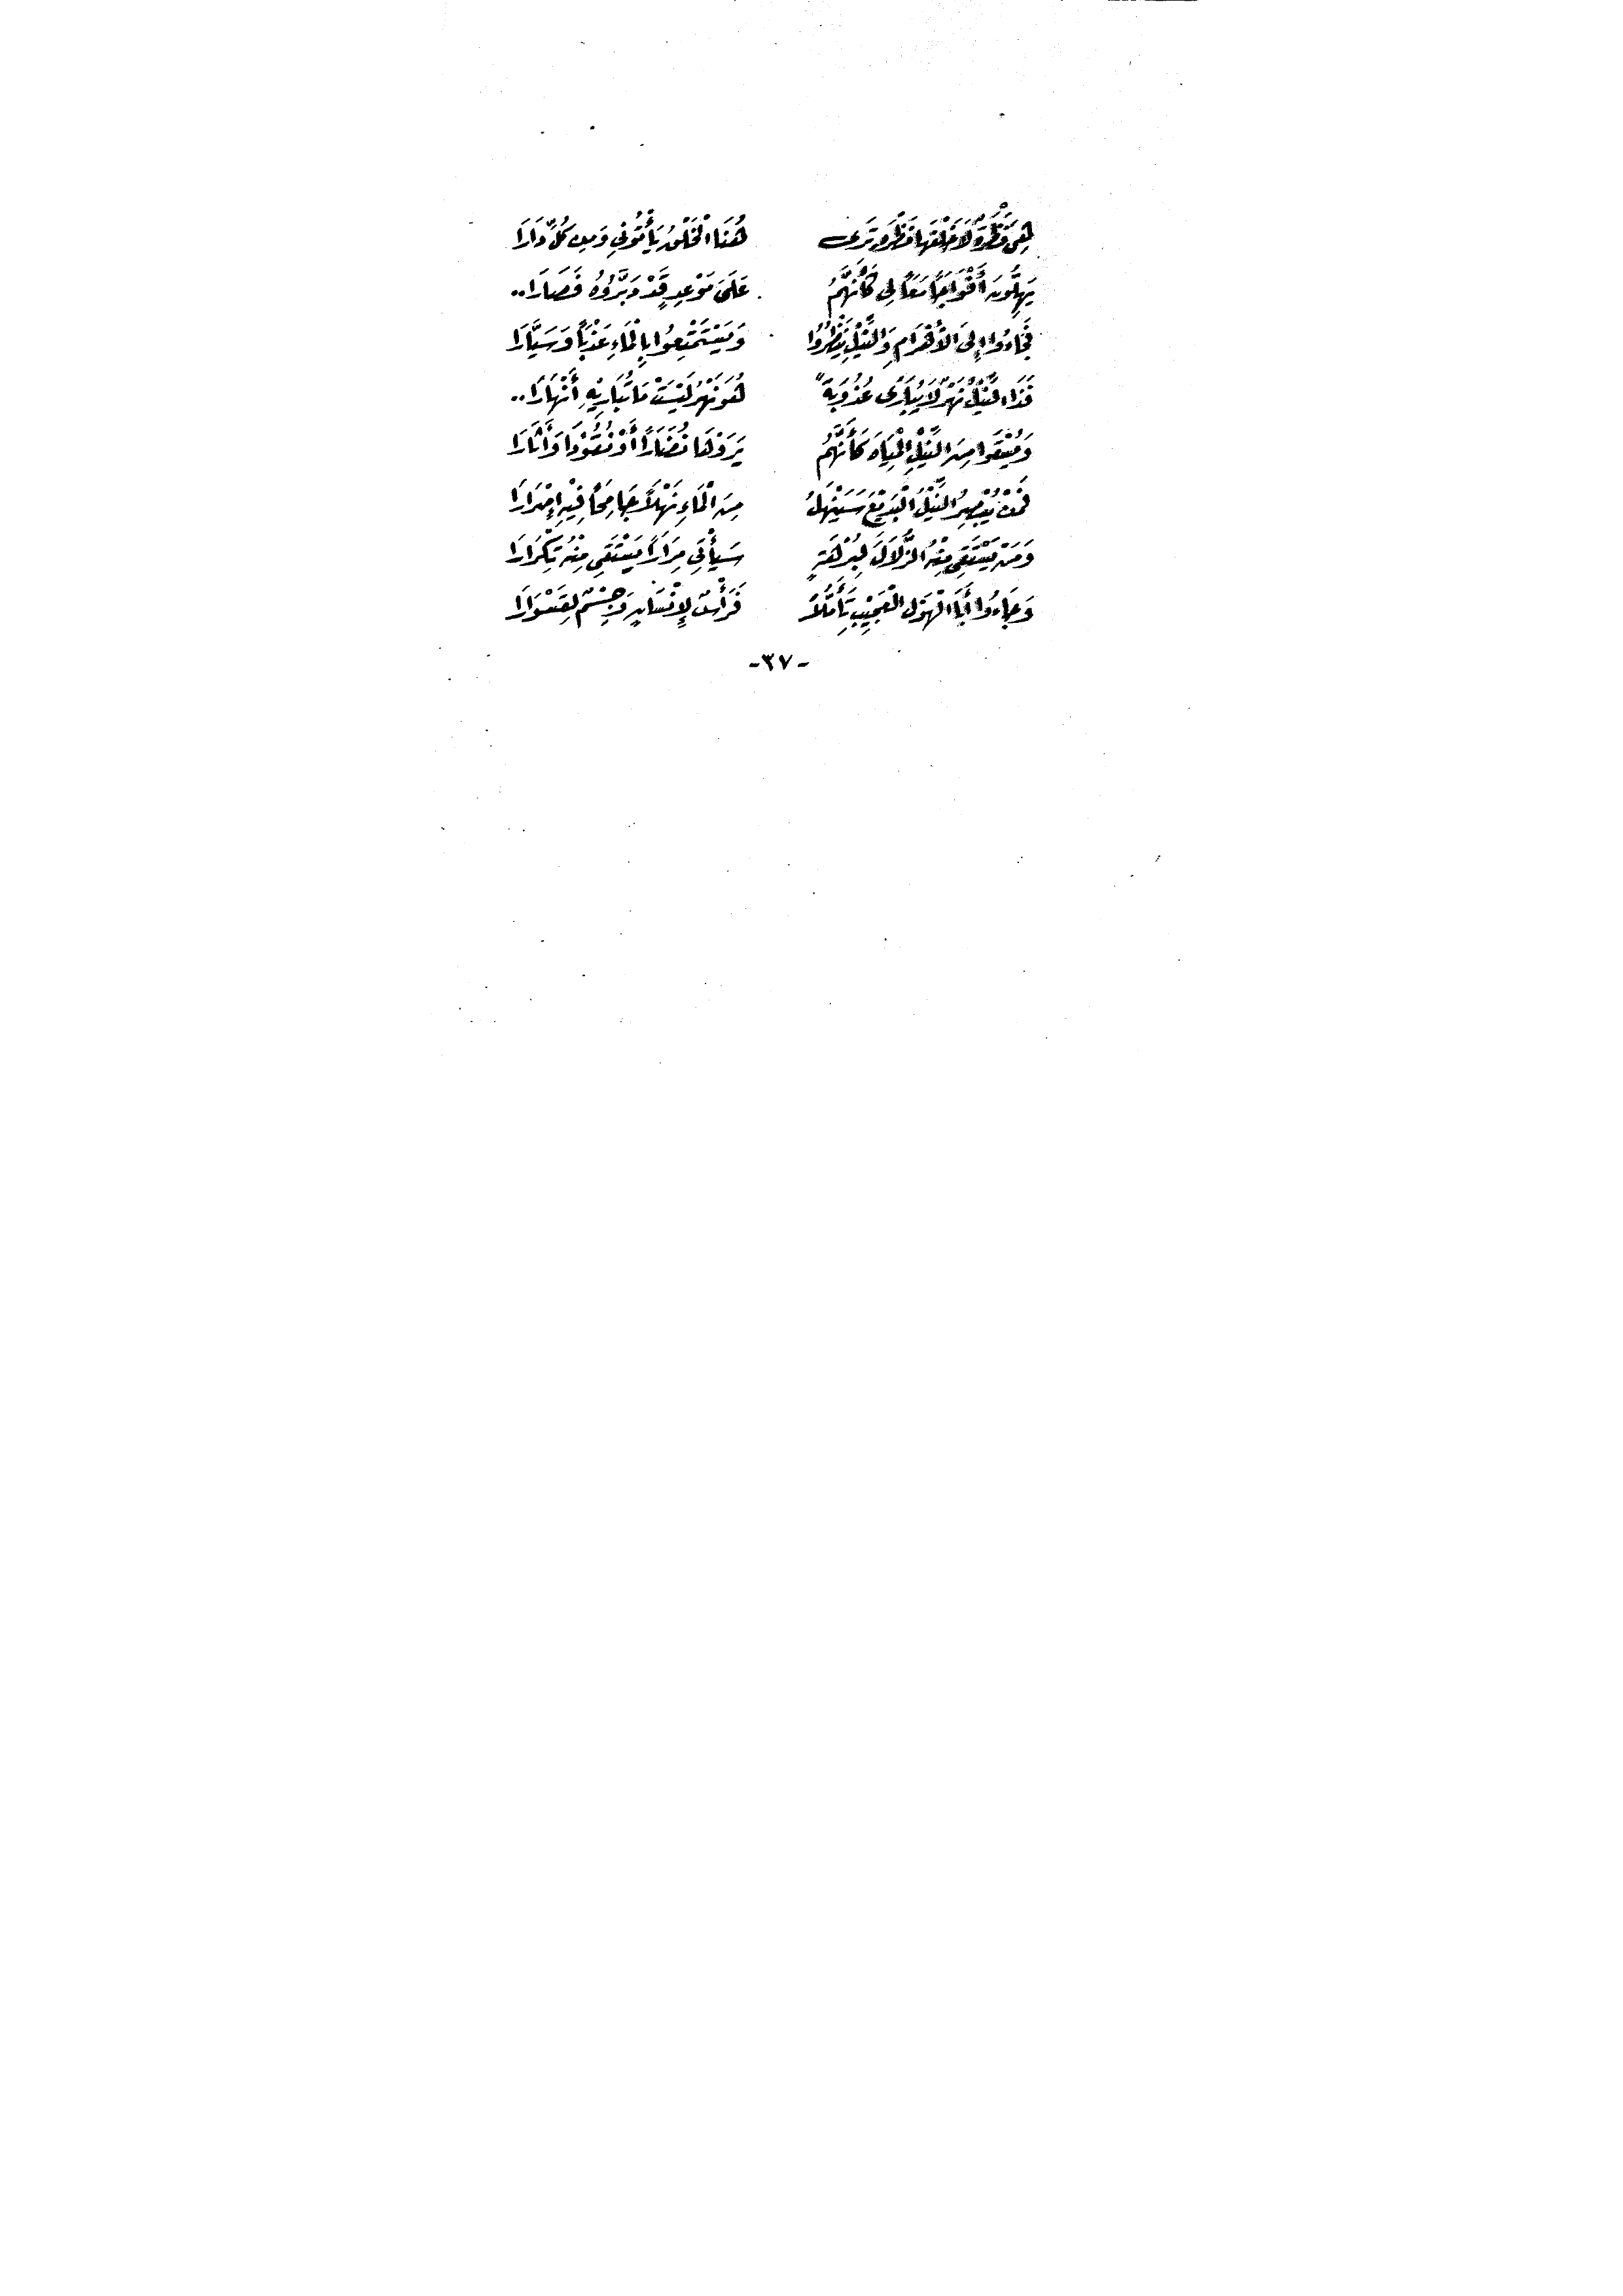 هُنَا الْخَلْقُ يَأْتُونِي وَمِن كُلِّ دَارَا
يَهِلُّونَ أَفْوَاجًا مَعًا لِي كَأَنَّهُمُ عَلَى مَوْعِدٍ قَدْ دَبَّرُوهُ فَصَارَا..
فَجَاءُوا إِلَى الأَهْرَامِ وَالنِّيلِ يَنْظُرُوا وَيَسْتَمْتِعُوا بِالْمَاءِ عَذْبًا وَسَيَّارَا
فَذَا النِّيلُ نَهْرٌ لَا يُبَارَى عُذُوبَةً هُوَ نَهْرٌ لَيْسَتْ مَا تُبَارِيْهِ أَنْهَارَا..
وَيُسْقَوا مِنَ النِّيْلِ الْمِيَاهَ كَأَنَّهُمُ يَرَوْهَا نُضَارًا أَوْ نُقُوْدًا وَآثَارَا
فَمَنْ يُبْصِرُ النِّيْلَ الْبَدِيْعَ سَيَنْهَلُ مِنَ الْمَاءِ نَهْلاً جَامِحًا فِيْهِ إِمْرَارَا
وَمَنْ يَسْتَقِي مِنْهُ الزُّلَالَ لِبُرْهَةٍ سَيَأْتِي مِرَارًا يَسْتَقِي مِنْهُ تِكْرَارَا
وَجَاءُوا أَبَا الْهَوْلِ الْعَجِيْبِ تَأَمُّلاً فَرَأْسٌ لِإِنْسَانٍ وَجِسْمٌ لِقَسْوَارَا
-٣٧-